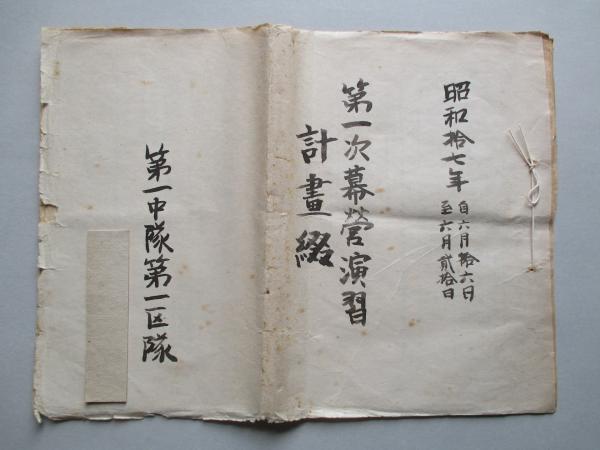 昭和拾七年
自六月拾六日
至六月貳拾日
第一次幕営演習
計畫綴
第一中隊第一区隊